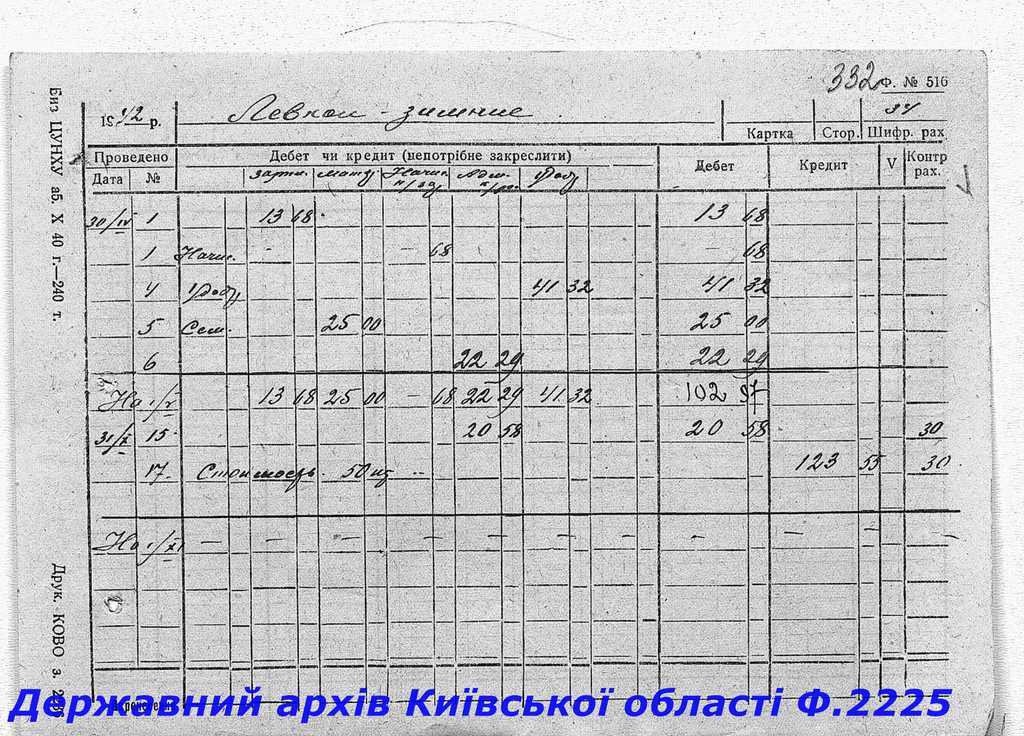 332 Ф. № 516
1942 р. Левкои - зимние 34
Картка Стор. Шифр. рах
Проведено Дебет чи кредит (непотрібне закреслити) Дебет Кредит V Контр рах.
Дата № зарпл. Начисл. Адм. Удобр
30/IV 1 13 68 13 68
1 Начис. — 68 — 68
4 Удобр 41 32 41 32
5 Сем. 25 00 25 00
6 22 29 22 29
На 1/V 13 68 25 00 — 68 22 29 41 32 102 97
31/X 15 20 58 20 58 30
17 Стоимость 50 123 55 30
На 1/XI — — — — — — — — — —
Биз ЦУНХУ аб. X 40 г.—240 т.
Друк. КОВО з.
Державний архів Київської області Ф.2225